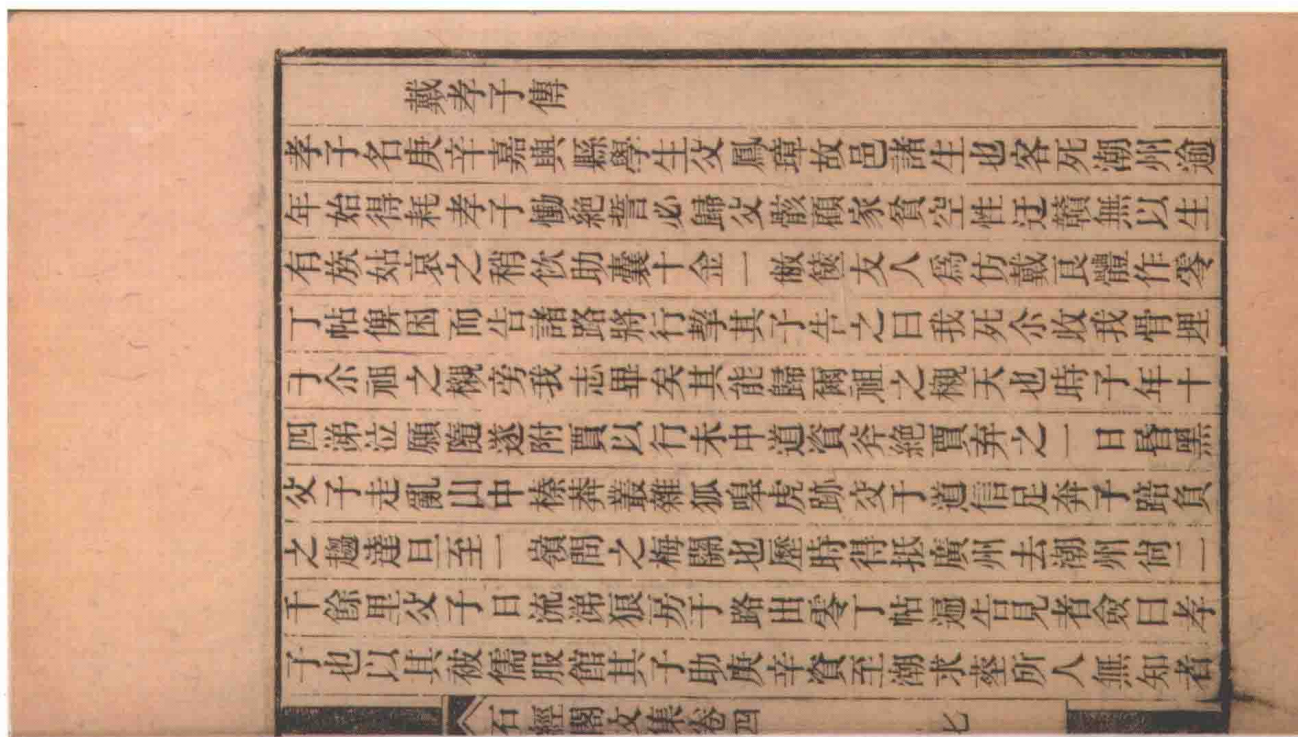 戴孝子傳
孝子名庚辛嘉興縣學生父鳳璋故邑諸生也客死潮州逾
年始得耗孝子慟絶誓必歸父骸顧家貧空性迂贛無以生
有族姑哀之稍佽助囊十金一敝篋友人為仿戴良體作零
丁帖俾因而告諸路將行挈其子告之曰我死尒收我骨埋
于尒祖之櫬旁我志畢矣其能歸爾祖之櫬天也時子年十
四涕泣願隨遂附賈以行未中道資斧絶賈弃之一日昏黑
父子走亂山中榛莽叢雜狐嘷虎跡交于道信足奔子踣負
之趨達旦至一嶺問之梅關也歷時得抵廣州去潮州尚二
千餘里父子日流涕狠㢊于路出零丁帖遍告見者僉曰孝
子也以其被儒服館其子助庚辛資至潮求塟所人無知者
石經閣文集卷四 七